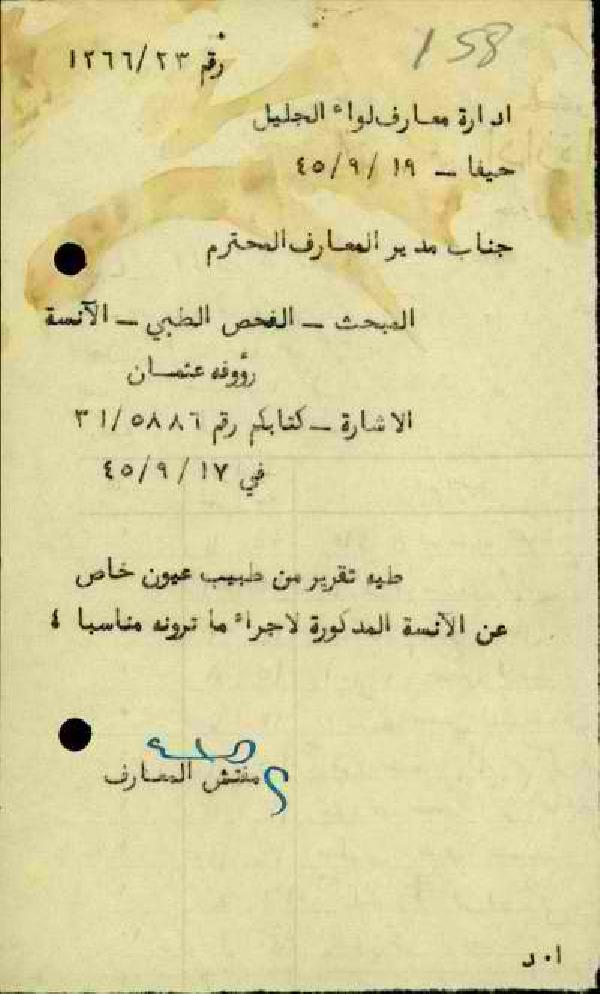 158
رقم ١٢٦٦/٢٣
ادارة معارف لواء الجليل
حيفا – ١٩ /٤٥/٩
جناب مدير المعارف المحترم
المبحث – الفحص الطبي – الآنسة
رؤوفه عثمان
الاشارة – كتابكم رقم ٣١/٥٨٨٦
في ١٧ /٤٥/٩
طيه تقرير من طبيب عيون خاص
عن الآنسة المذكورة لاجراء ما ترونه مناسبا ٤
مفتش المعارف
ا٠ د